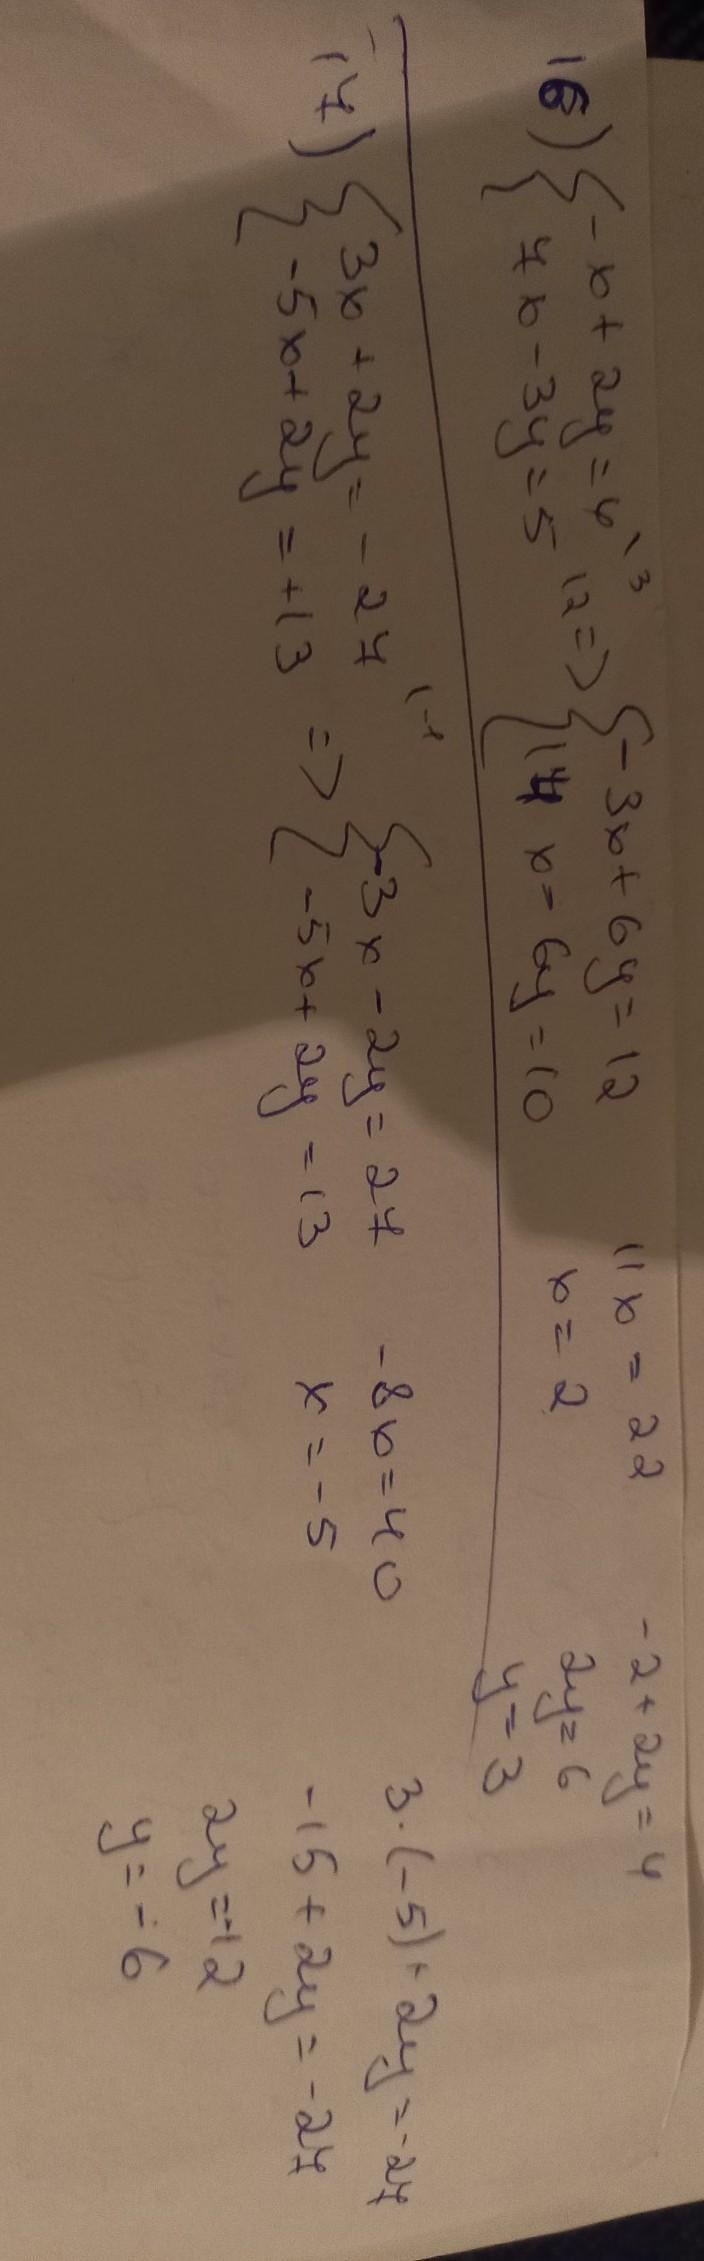 16) { -x + 2y = 4 \ 3
7x - 3y = 5 | 2 => { -3x + 6y = 12
14x = 6y = 10
11x = 22
x = 2
-2 + 2y = 4
2y = 6
y = 3
17) { 3x + 2y = -27 \ -1
-5x + 2y = +13 => { -3x - 2y = 27
-5x + 2y = 13
-8x = 40
x = -5
3·(-5) + 2y = -27
-15 + 2y = -27
2y = -12
y = -6